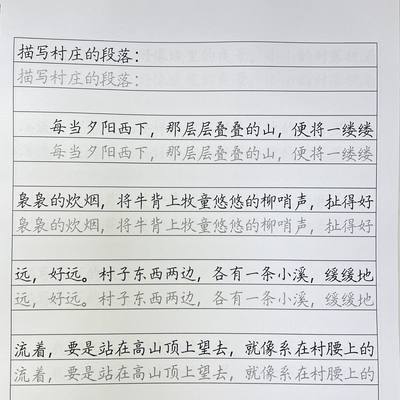 描写村庄的段落：
描写村庄的段落：
每当夕阳西下，那层层叠叠的山，便将一缕缕
每当夕阳西下，那层层叠叠的山，便将一缕缕
袅袅的炊烟，将牛背上牧童悠悠的柳哨声，扯得好
袅袅的炊烟，将牛背上牧童悠悠的柳哨声，扯得好
远，好远。村子东西两边，各有一条小溪，缓缓地
远，好远。村子东西两边，各有一条小溪，缓缓地
流着，要是站在高山顶上望去，就像系在村腰上的
流着，要是站在高山顶上望去，就像系在村腰上的